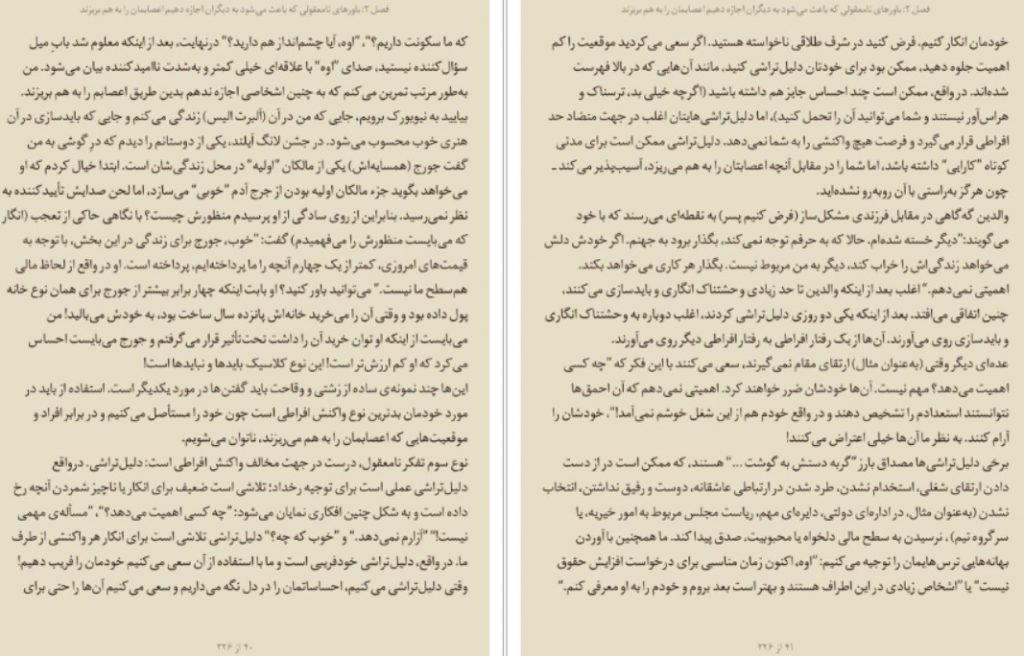 فصل ۲: باورهای نامعقولی که باعث می‌شود به دیگران اجازه دهیم اعصابمان را به هم بریزند
که ما سکونت داریم؟"، "اوه، آیا چشم‌انداز هم دارید؟" درنهایت، بعد از اینکه معلوم شد بابِ میل
سؤال‌کننده نیستید، صدای "اوه" با علاقه‌ای خیلی کمتر و به‌شدت ناامیدکننده بیان می‌شود. من
به‌طور مرتب تمرین می‌کنم که به چنین اشخاصی اجازه ندهم بدین طریق اعصابم را به هم بریزند.
بیایید به نیویورک برویم، جایی که من در آن (آلبرت الیس) زندگی می‌کنم و جایی که بایدسازی در آن
هنری خوب محسوب می‌شود. در جشن لانگ آیلند، یکی از دوستانم را دیدم که درِ گوشی به من
گفت جورج (همسایه‌اش) یکی از مالکان "اولیه" در محل زندگی‌شان است. ابتدا خیال کردم که او
می‌خواهد بگوید جزء مالکان اولیه بودن از جرج آدم "خوبی" می‌سازد، اما لحن صدایش تأییدکننده به
نظر نمی‌رسید، بنابراین از روی سادگی از او پرسیدم منظورش چیست؟ با نگاهی حاکی از تعجب (انگار
که می‌بایست منظورش را می‌فهمیدم) گفت: "خوب، جورج برای زندگی در این بخش، با توجه به
قیمت‌های امروزی، کمتر از یک چهارم آنچه را ما پرداخته‌ایم، پرداخته است. او در واقع از لحاظ مالی
هم‌سطح ما نیست." می‌توانید باور کنید؟ او بابت اینکه چهار برابر بیشتر از جورج برای همان نوع خانه
پول داده بود و وقتی آن را می‌خرید خانه‌اش پانزده سال ساخت بود، به خودش می‌بالید! من
می‌بایست از اینکه او توان خرید آن را داشت تحت‌تأثیر قرار می‌گرفتم و جورج می‌بایست احساس
می‌کرد که او کم ارزش‌تر است! این نوع کلاسیک بایدها و نبایدها است!
این‌ها چند نمونه‌ی ساده از زشتی و وقاحت باید گفتن‌ها در مورد یکدیگر است. استفاده از باید در
مورد خودمان بدترین نوع واکنش افراطی است چون خود را مستأصل می‌کنیم و در برابر افراد و
موقعیت‌هایی که اعصابمان را به هم می‌ریزند، ناتوان می‌شویم.
نوع سوم تفکر نامعقول، درست در جهت مخالف واکنش افراطی است: دلیل‌تراشی. درواقع
دلیل‌تراشی عملی است برای توجیه رخداد؛ تلاشی است ضعیف برای انکار یا ناچیز شمردن آنچه رخ
داده است و به شکل چنین افکاری نمایان می‌شود: "چه کسی اهمیت می‌دهد؟"، "مسأله‌ی مهمی
نیست!" "آزارم نمی‌دهد." و "خوب که چه؟" دلیل‌تراشی تلاشی است برای انکار هر واکنشی از طرف
ما. در واقع، دلیل‌تراشی خودفریبی است و ما با استفاده از آن سعی می‌کنیم خودمان را فریب دهیم!
وقتی دلیل‌تراشی می‌کنیم، احساساتمان را در دل نگه می‌داریم و سعی می‌کنیم آن‌ها را حتی برای
۴۰ از ۲۲۶
فصل ۲: باورهای نامعقولی که باعث می‌شود به دیگران اجازه دهیم اعصابمان را به هم بریزند
خودمان انکار کنیم. فرض کنید در شرف طلاقی ناخواسته هستید. اگر سعی می‌کردید موقعیت را کم
اهمیت جلوه دهید، ممکن بود برای خودتان دلیل‌تراشی کنید، مانند آن‌هایی که در بالا فهرست
شده‌اند. در واقع، ممکن است چند احساس جایز هم داشته باشید (اگرچه خیلی بد، ترسناک و
هراس‌آور نیستند و شما می‌توانید آن را تحمل کنید)، اما دلیل‌تراشی‌هایتان اغلب در جهت متضاد حد
افراطی قرار می‌گیرد و فرصت هیچ واکنشی را به شما نمی‌دهد. دلیل‌تراشی ممکن است برای مدتی
کوتاه "کارایی" داشته باشد، اما شما را در مقابل آنچه اعصابتان را به هم می‌ریزد، آسیب‌پذیر می‌کند ـ
چون هرگز به‌راستی با آن روبه‌رو نشده‌اید.
والدین گه‌گاهی در مقابل فرزندی مشکل‌ساز (فرض کنیم پسر) به نقطه‌ای می‌رسند که با خود
می‌گویند: "دیگر خسته شده‌ام. حالا که به حرفم توجه نمی‌کند، بگذار برود به جهنم. اگر خودش دلش
می‌خواهد زندگی‌اش را خراب کند، دیگر به من مربوط نیست. بگذار هر کاری می‌خواهد بکند.
اهمیتی نمی‌دهم." اغلب بعد از اینکه والدین تا حد زیادی وحشتناک انگاری و بایدسازی می‌کنند،
چنین اتفاقی می‌افتد. بعد از اینکه یکی دو روزی دلیل‌تراشی کردند، اغلب دوباره به وحشتناک انگاری
و بایدسازی روی می‌آورند. آن‌ها از یک رفتار افراطی به رفتار افراطی دیگر روی می‌آورند.
عده‌ای دیگر وقتی (به‌عنوان مثال) ارتقای مقام نمی‌گیرند، سعی می‌کنند با این فکر که "چه کسی
اهمیت می‌دهد؟ مهم نیست. آن‌ها خودشان ضرر خواهند کرد. اهمیتی نمی‌دهم که آن احمق‌ها
نتوانستند استعدادم را تشخیص دهند و در واقع خودم هم از این شغل خوشم نمی‌آمد!"، خودشان را
آرام کنند. به نظر ما آن‌ها خیلی اعتراض می‌کنند!
برخی دلیل‌تراشی‌ها مصداق بارز "گربه دستش به گوشت ..." هستند، که ممکن است در از دست
دادن ارتقای شغلی، استخدام نشدن، طرد شدن در ارتباطی عاشقانه، دوست و رفیق نداشتن، انتخاب
نشدن (به‌عنوان مثال، در اداره‌ای دولتی، دایره‌ای مهم، ریاست مجلس مربوط به امور خیریه، یا
سرگروه تیم) ، نرسیدن به سطح مالی دلخواه یا محبوبیت، صدق پیدا کند. ما همچنین با آوردن
بهانه‌هایی ترس‌هایمان را توجیه می‌کنیم: "اوه، اکنون زمان مناسبی برای درخواست افزایش حقوق
نیست" یا "اشخاص زیادی در این اطراف هستند و بهتر است بعد بروم و خودم را به او معرفی کنم."
۴۱ از ۲۲۶